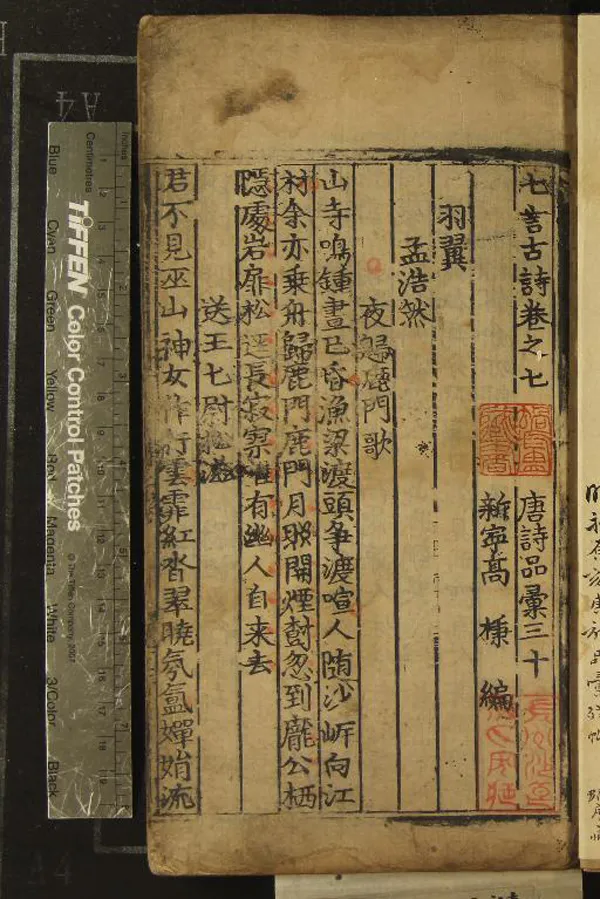 七言古詩卷之七 唐詩品彙三十
新寧高棅編
羽翼
孟浩然
夜歸鹿門歌
山寺鳴鍾晝已昏漁梁渡頭爭渡喧人随沙㟁向江
村余亦乗舟歸鹿門鹿門月照開煙樹忽到龐公栖
隠處岩扉松逕長寂寥惟有幽人自来去
送王七尉松滋
君不見巫山神女作行雲霏紅沓翠曉氛氲嬋娟流
Inches
Centimetres
TIFFEN Color Control Patches
© The Tiffen Company, 2007
Blue
Cyan
Green
Yellow
Red
Magenta
White
3/Color
Black
A4
A4